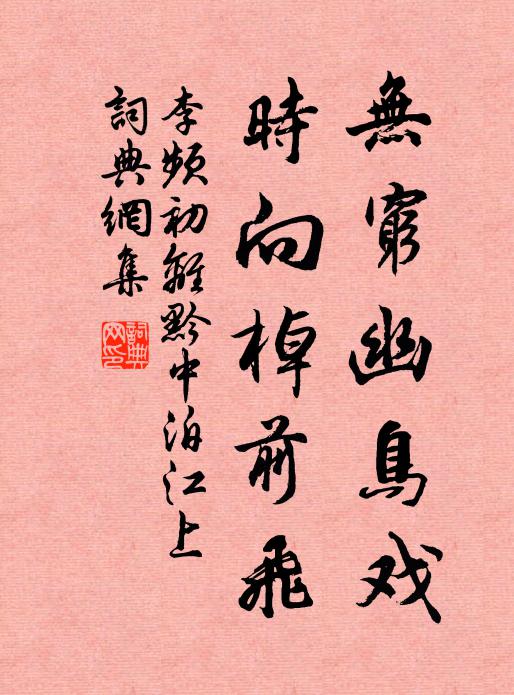 無窮幽鳥戏
時向棹前飛
李频初離黔中泊江上
詞典網集
詞典網印